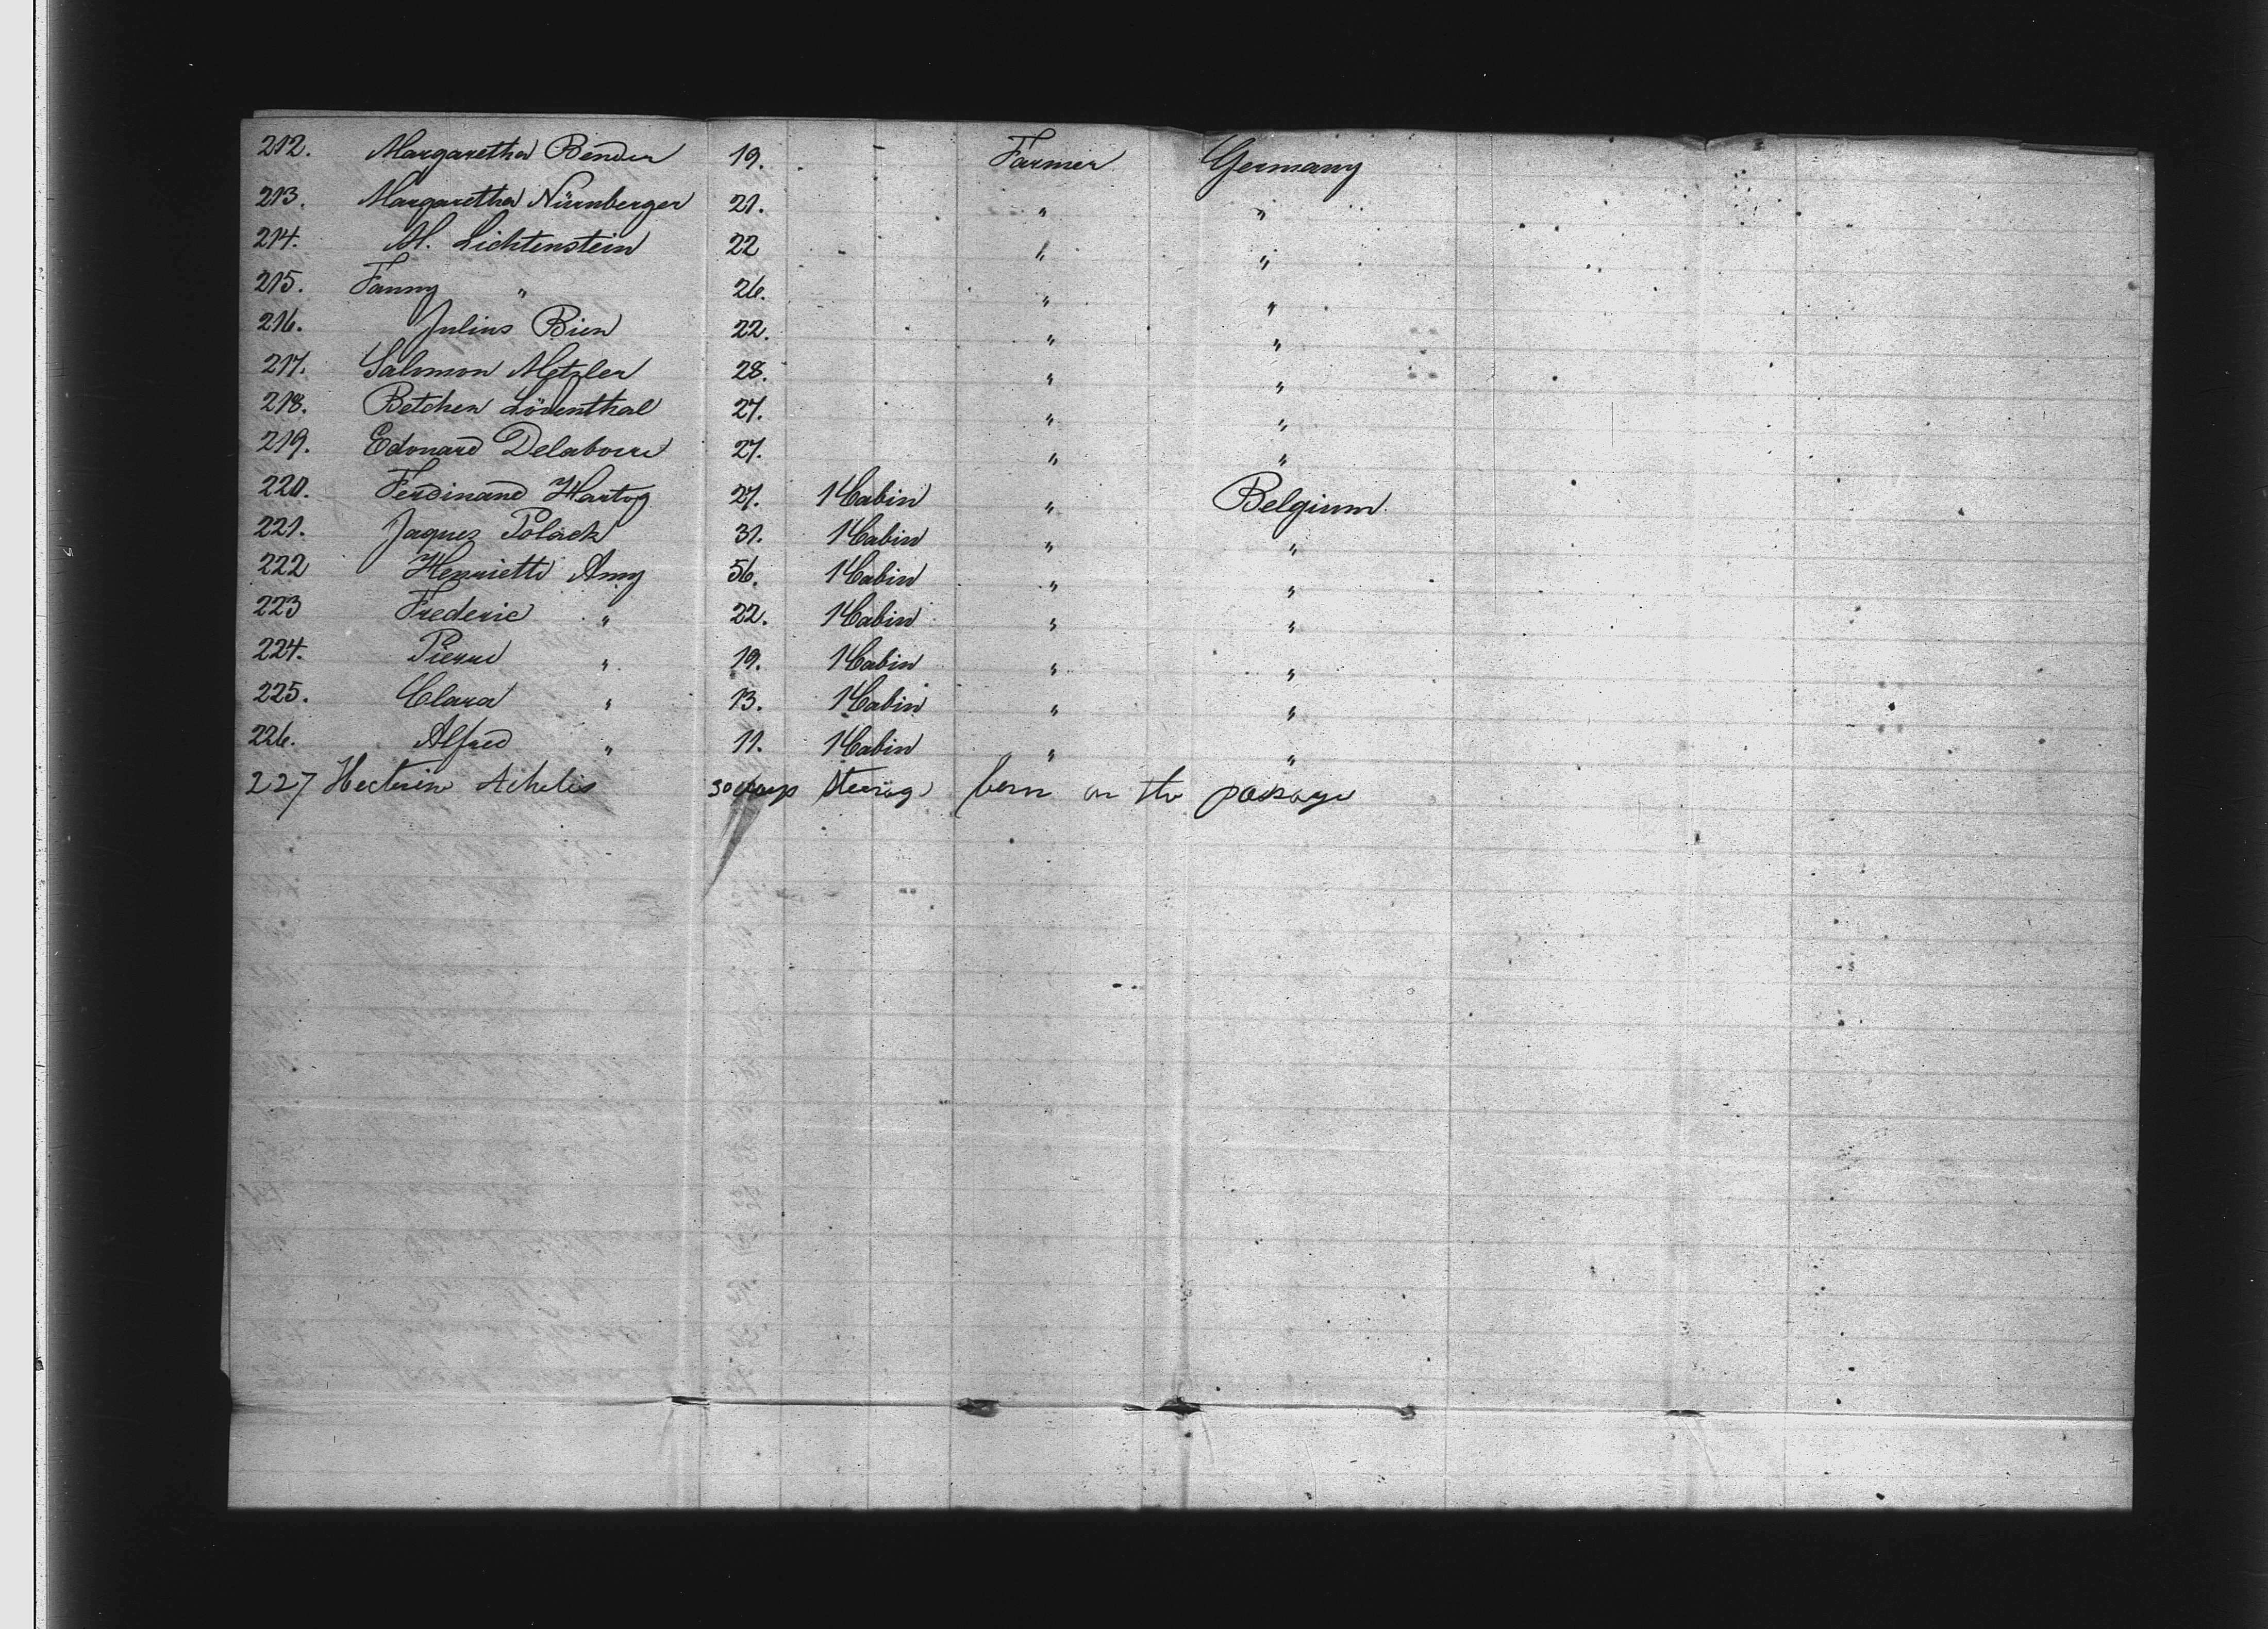 212. Margaretha Bender 19. Farmer Germany
213. Margaretha Nürnberger 21. " "
214. M. Lichtenstein 22 " "
215. Fanny " 26. " "
216. Julius Bien 22. " "
217. Salomon Metzler 28. " "
218. Betchen Löventhal 27. " "
219. Edouard 27. " "
220. Ferdinand Hartog 27. 1 Cabin " Belgium
221. Jaques Polack 31. 1 Cabin " "
222 Henriette Anny 56. 1 Cabin " "
223 Frederic " 22. 1 Cabin " "
224. Pierre " 19. 1 Cabin " "
225. Clara " 13. 1 Cabin " "
226. Alfred " 11. 1 Cabin " "
227 Achelis 30 days Steerage born on the passage